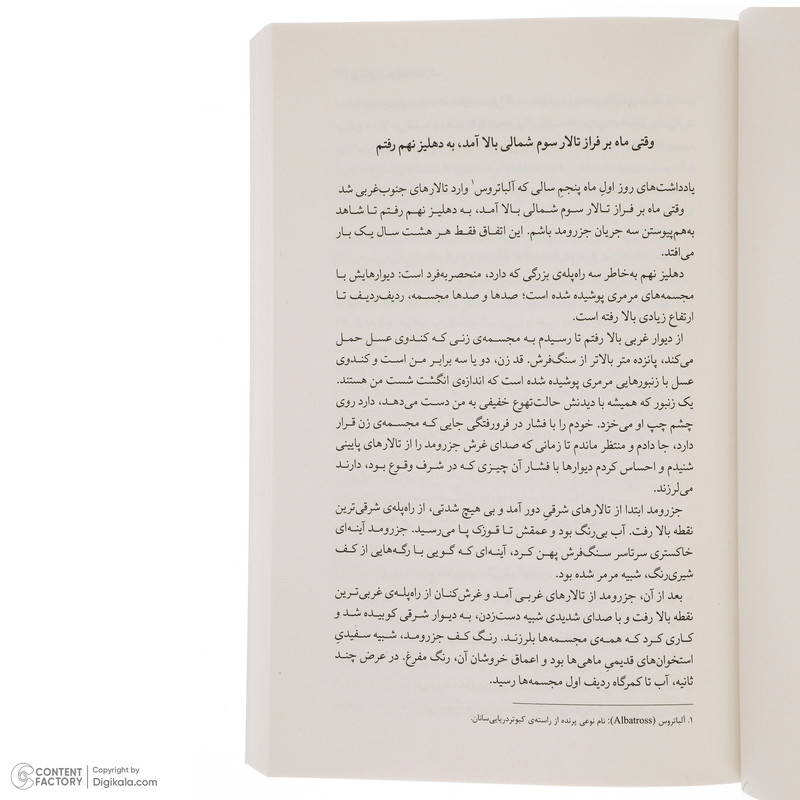 وقتی ماه بر فراز تالار سوم شمالی بالا آمد، به دهلیز نهم رفتم
یادداشت‌های روز اولِ ماه پنجمِ سالی که آلباتروس۱ وارد تالارهای جنوب‌غربی شد
وقتی ماه بر فراز تالار سوم شمالی بالا آمد، به دهلیز نهم رفتم تا شاهد
به‌هم‌پیوستن سه جریان جزرومد باشم. این اتفاق فقط هر هشت سال یک بار
می‌افتد.
دهلیز نهم به‌خاطر سه راه‌پله‌ی بزرگی که دارد، منحصربه‌فرد است: دیوارهایش با
مجسمه‌های مرمری پوشیده شده است؛ صدها و صدها مجسمه، ردیف‌ردیف تا
ارتفاع زیادی بالا رفته است.
از دیوار غربی بالا رفتم تا رسیدم به مجسمه‌ی زنی که کندوی عسل حمل
می‌کند، پانزده متر بالاتر از سنگ‌فرش. قد زن، دو یا سه برابر من است و کندوی
عسل با زنبورهایی مرمری پوشیده شده است که اندازه‌ی انگشت شست من هستند.
یک زنبور که همیشه با دیدنش حالت‌تهوع خفیفی به من دست می‌دهد، دارد روی
چشم چپ او می‌خزد. خودم را با فشار در فرورفتگی جایی که مجسمه‌ی زن قرار
دارد، جا دادم و منتظر ماندم تا زمانی که صدای غرش جزرومد را از تالارهای پایینی
شنیدم و احساس کردم دیوارها با فشار آن چیزی که در شرف وقوع بود، دارند
می‌لرزند.
جزرومد ابتدا از تالارهای شرقیِ دور آمد و بی هیچ شدتی، از راه‌پله‌ی شرقی‌ترین
نقطه بالا رفت. آب بی‌رنگ بود و عمقش تا قوزک پا می‌رسید. جزرومد آینه‌ای
خاکستری سرتاسر سنگ‌فرش پهن کرد، آینه‌ای که گویی با رگه‌هایی از کف
شیری‌رنگ، شبیه مرمر شده بود.
بعد از آن، جزرومد از تالارهای غربی آمد و غرش‌کنان از راه‌پله‌ی غربی‌ترین
نقطه بالا رفت و با صدای شدیدی شبیه دست‌زدن، به دیوار شرقی کوبیده شد و
کاری کرد که همه‌ی مجسمه‌ها بلرزند. رنگ کف جزرومد، شبیه سفیدیِ
استخوان‌های قدیمیِ ماهی‌ها بود و اعماق خروشان آن، رنگ مفرغ. در عرض چند
ثانیه، آب تا کمرگاه ردیف اول مجسمه‌ها رسید.
۱. آلباتروس (Albatross): نام نوعی پرنده از راسته‌ی کبوتردریایی‌سانان.
CONTENT FACTORY
Copyright by
Digikala.com